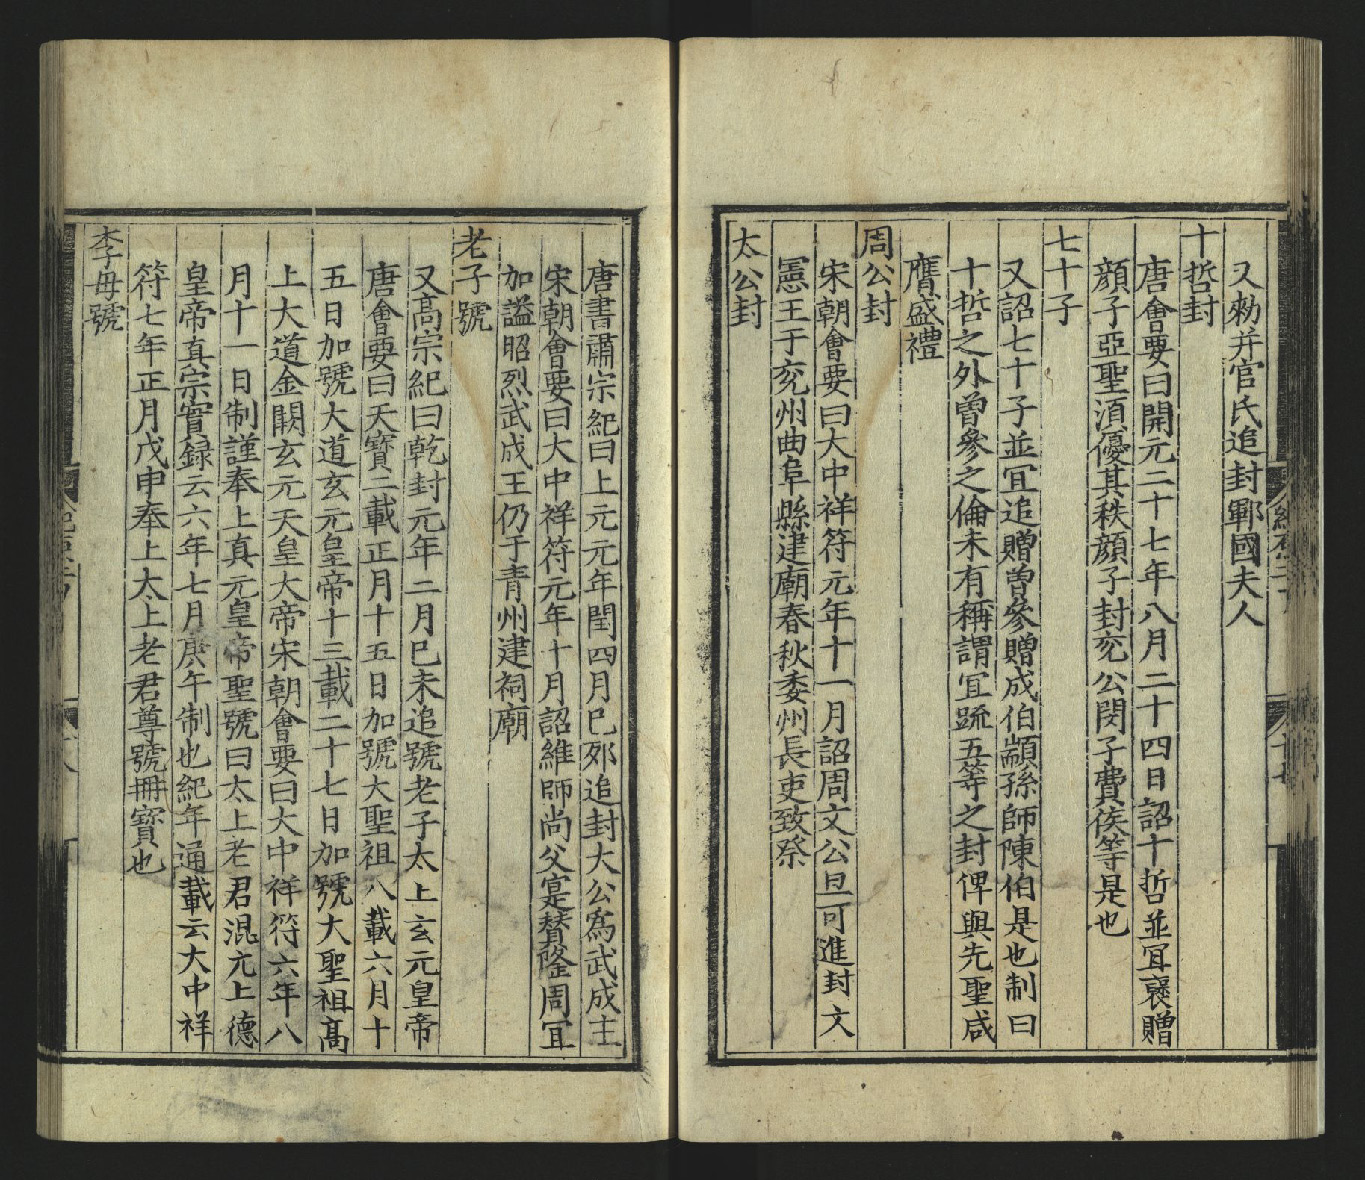 又勑并官氏追封鄆國夫人
十哲封
唐會要曰開元二十七年八月二十四日詔十哲並冝襃贈
顔子亞聖湏優其秩顔子封兖公閔子費侯等是也
七十子
又詔七十子並冝追贈曽參贈成伯顓孫師陳伯是也制曰
十哲之外曽參之倫未有稱謂冝䟽五等之封俾與先聖咸
膺盛禮
周公封
宋朝會要曰大中祥符元年十一月詔周文公旦可進封文
憲王于兖州曲阜縣建廟春秋委州長吏致祭
太公封
唐書肅宗紀曰上元元年閏四月巳夘追封大公爲武成王
宋朝會要曰大中祥符元年十月詔維師尚父寔賛隆周冝
加謚昭烈武成王仍于青州建祠廟
老子號
又髙宗紀曰乾封元年二月巳未追號老子太上玄元皇帝
唐會要曰天寶二載正月十五日加號大聖祖八載六月十
五日加號大道玄元皇帝十三載二十七日加號大聖祖髙
上大道金闕玄元天皇大帝宋朝會要曰大中祥符六年八
月十一日制謹奉上真元皇帝聖號曰太上老君混元上德
皇帝真宗實録云六年七月庚午制也紀年通載云大中祥
符七年正月戊申奉上太上老君尊號冊寶也
李母號